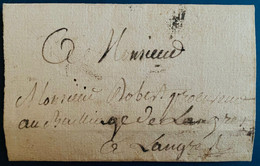 A Monsieur
Monsieur Robert procureur
au Bailliage de Langres
a Langres